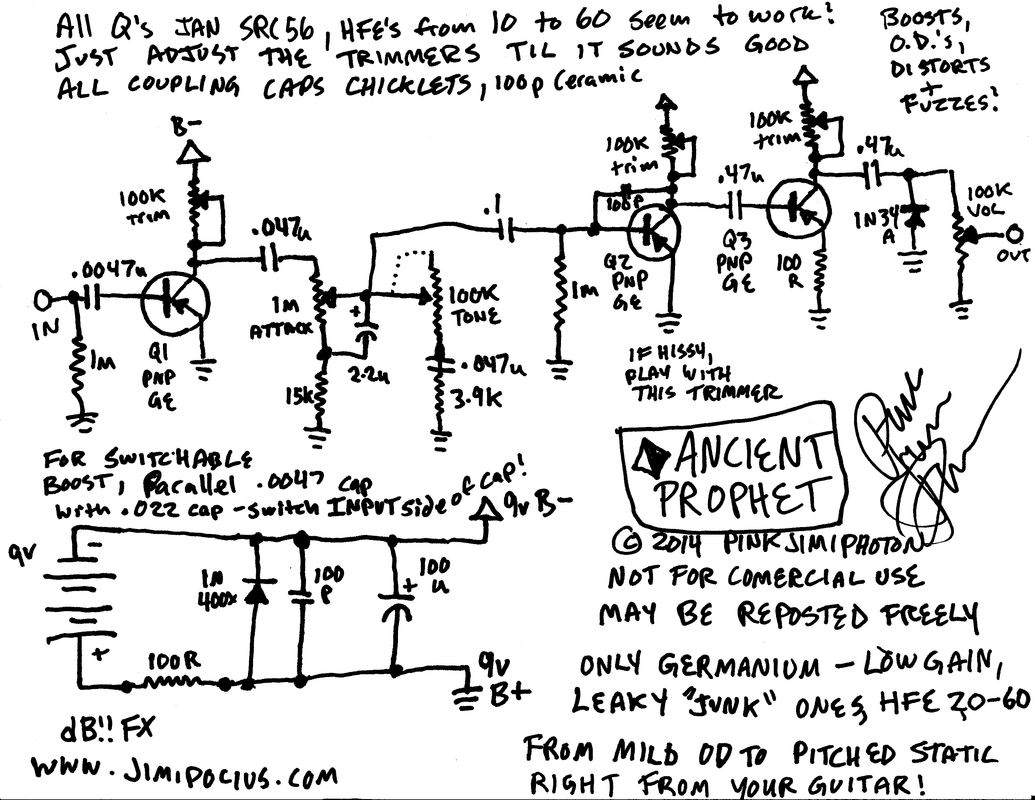 All Q's JAN SRC56, HFE's from 10 to 60 seem to work!
JUST ADJUST THE TRIMMERS TIL IT SOUNDS GOOD
ALL COUPLING CAPS CHICKLETS, 100p Ceramic
BOOSTS,
O.D.'s,
DISTORTS
+
FUZZES!
B-
100K
TRIM
.0047u
IN
1M
Q1
PNP
GE
.047u
1M
ATTACK
15K
+
2.2u
100K
TONE
.047u
3.9K
.1
1M
100K
trim
100P
Q2
PNP
GE
.47u
Q3
PNP
GE
100K
trim
100
R
.47u
1N34
A
100K
VOL
OUT
IF HISSY,
PLAY WITH
THIS TRIMMER
FOR SWITCHABLE
BOOST, Parallel .0047 cap
with .022 cap - switch INPUT side of cap!
9v B-
9v
-
+
100R
1N
400x
100
P
+
100
u
9v
B+
dB!! FX
WWW.JIMIPOCIUS.COM
ANCIENT
PROPHET
© 2014 PINKJIMIPHOTON
NOT FOR COMERCIAL USE
MAY BE REPOSTED FREELY
ONLY GERMANIUM - LOW GAIN,
LEAKY "JUNK" ONES, HFE 20-60
FROM MILD OD TO PITCHED STATIC
RIGHT FROM YOUR GUITAR!